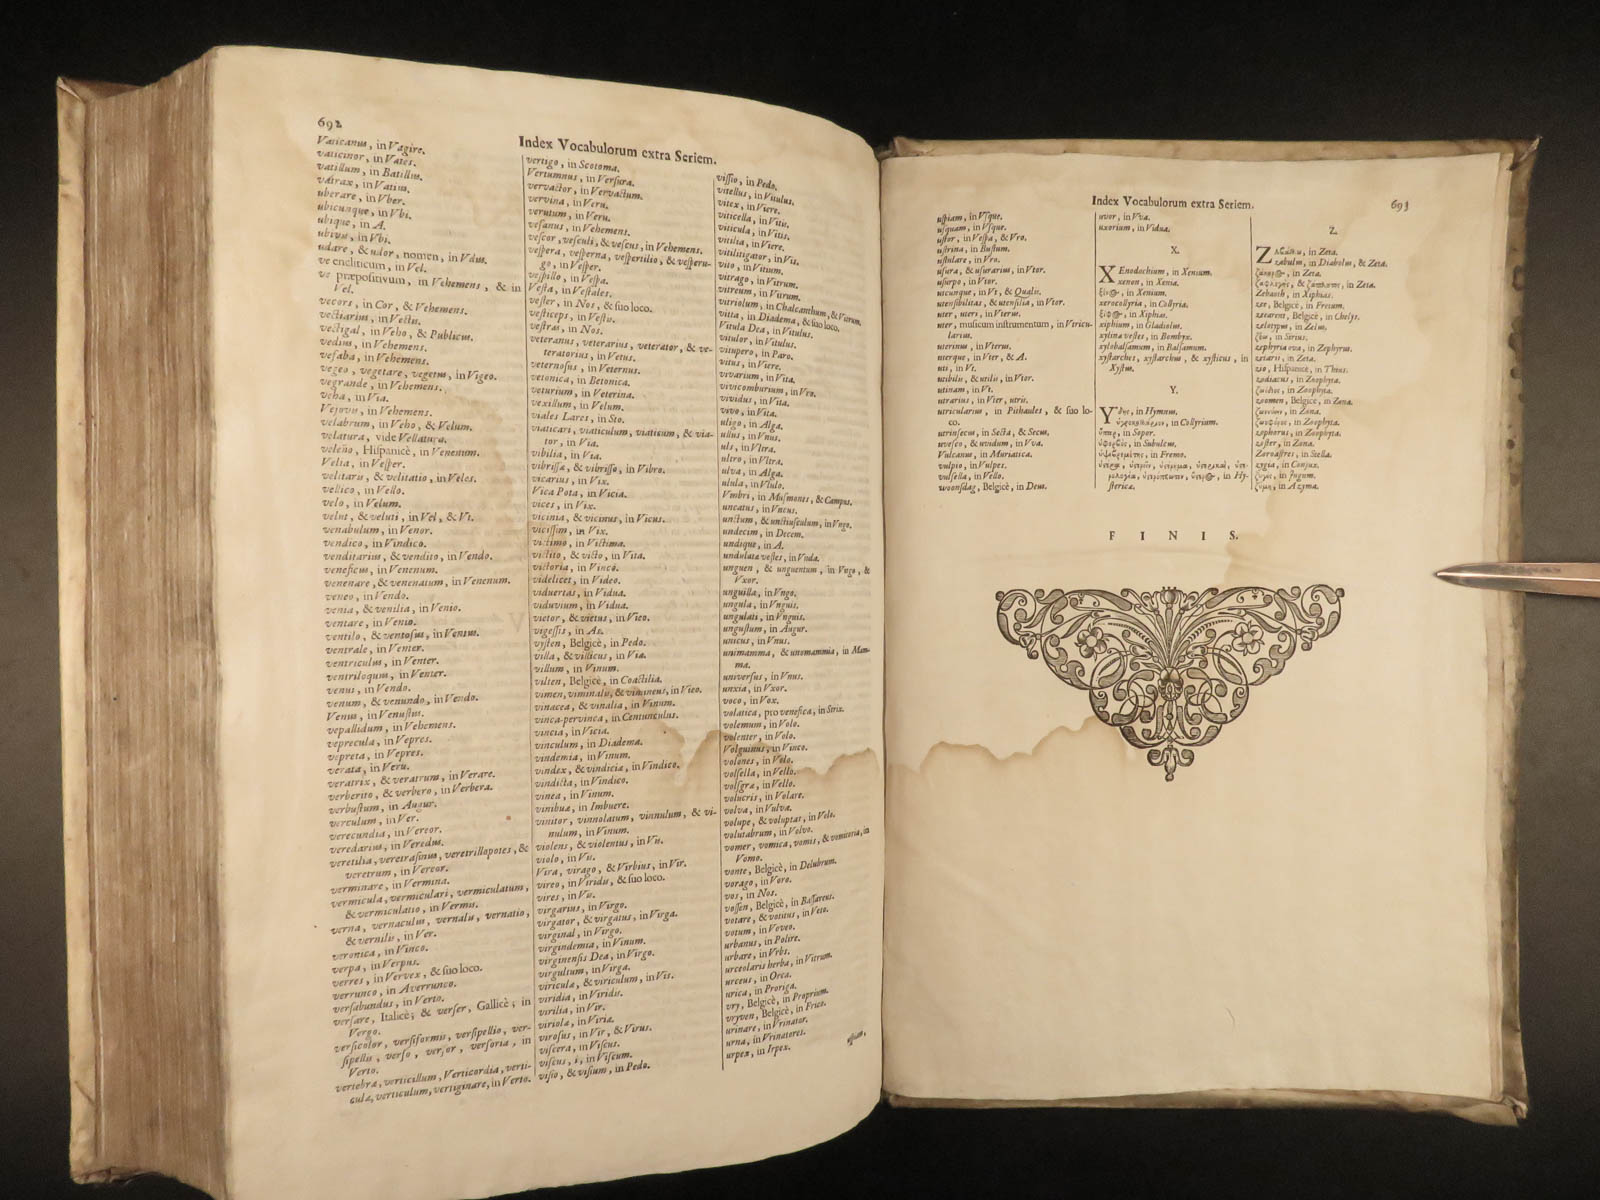 692
Index Vocabulorum extra Seriem.
Vaticanus, in Vagire.
vaticinor, in Vates.
vatillum, in Batillus.
vatrax, in Vatius.
uberare, in Vber.
ubicunque, in Vbi.
ubique, in A.
ubivis, in Vbi.
udare, & udor, nomen, in Vdus.
ve encliticum, in Vel.
ve præpositivum, in Vehemens, & in
Vel.
vecors, in Cor, & Vehemens.
vectiarius, in Vectis.
vectigal, in Veho, & Publicus.
vedius, in Vehemens.
vefaba, in Vehemens.
vegeo, vegetare, vegetus, in Vigeo.
vegrande, in Vehemens.
veha, in Via.
Vejovis, in Vehemens.
velabrum, in Veho, & Velum.
velatura, vide Vellatura.
veleño, Hispanicè, in Venenum.
Velia, in Vesper.
velitaris, & velitatio, in Veles.
vellico, in Vello.
velo, in Velum.
velut, & veluti, in Vel, & Vt.
venabulum, in Venor.
vendico, in Vindico.
venditarius, & vendito, in Vendo.
veneficus, in Venenum.
venenare, & venenatum, in Venenum.
veneo, in Vendo.
venia, & venilia, in Venio.
ventare, in Venio.
ventilo, & ventosus, in Ventus.
ventrale, in Venter.
ventriculus, in Venter.
ventriloquus, in Venter.
venus, in Vendo.
venum, & venundo, in Vendo.
Venus, in Venustus.
vepallidum, in Vehemens.
veprecula, in Vepres.
vepreta, in Vepres.
verata, in Veru.
veratrix, & veratrum, in Verare.
verberito, & verbero, in Verbera.
verbustum, in Augur.
verculum, in Ver.
verecundia, in Vereor.
veredarius, in Veredus.
veretilia, veretrasinus, veretrillopotes, &
veretrum, in Vereor.
verminare, in Vermina.
vermicula, vermiculari, vermiculatum,
& vermiculatio, in Vermis.
verna, vernaculus, vernalis, vernatio,
& vernilis, in Ver.
veronica, in Vinco.
verpa, in Verpus.
verres, in Vervex, & suo loco.
verrunco, in Averrunco.
versabundus, in Verto.
versare, Italicè; & verser, Gallicè; in
Vergo.
versicolor, versiformis, versipellio, ver-
sipellis, verso, versor, versoria, in
Verto.
vertebræ, verticillum, Verticordia, verti-
culæ, verticulum, vertiginare, in Verto.
vertigo, in Scotoma.
Vertumnus, in Versura.
vervactor, in Vervactum.
vervina, in Veru.
verutum, in Veru.
vesanus, in Vehemens.
vescor, vesculi, & vescus, in Vehemens.
vespera, vesperna, vespertilio, & vesperu-
go, in Vesper.
vespillo, in Vespa.
Vesta, in Vestales.
vester, in Nos, & suo loco.
vesticeps, in Vestis.
vestras, in Nos.
veteranus, veterarius, veterator, & ve-
teratorius, in Vetus.
veternosus, in Veternus.
vetonica, in Betonica.
veturium, in Veterina.
vexillum, in Velum.
viales Lares, in Sto.
viaticari, viaticulum, viaticum, & via-
tor, in Via.
vibilia, in Via.
vibrissæ, & vibrisso, in Vibro.
vicarius, in Vix.
Vica Pota, in Vicia.
vices, in Vix.
vicinia, & vicinus, in Vicus.
vicissim, in Vix.
victimo, in Victima.
victito, & victo, in Vita.
victoria, in Vinco.
videlicet, in Video.
viduertas, in Vidua.
viduvium, in Vidua.
vietor, & vietus, in Vieo.
vigessis, in As.
vysten, Belgicè, in Pedo.
villa, & villicus, in Via.
villum, in Vinum.
vilten, Belgicè, in Coactilia.
vimen, viminalis, & vimineus, in Vieo.
vinacea, & vinalia, in Vinum.
vinca-pervinca, in Centunculus.
vincia, in Vicia.
vinculum, in Diadema.
vindemia, in Vinum.
vindex, & vindicia, in Vindico.
vindicta, in Vindico.
vinea, in Vinum.
vinibuæ, in Imbuere.
vinitor, vinnolatum, vinnulum, & vi-
nulum, in Vinum.
violens, & violentus, in Vis.
violo, in Vis.
Vira, virago, & Virbius, in Vir.
vireo, in Viridis, & suo loco.
vires, in Vis.
virgarius, in Virgo.
virgator, & virgatus, in Virga.
virginal, in Virgo.
virgindemia, in Vinum.
virginensis Dea, in Virgo.
virgultum, in Virga.
viricula, & viriculum, in Vis.
viridia, in Viridis.
virilia, in Vir.
viriola, in Viria.
virosus, in Vir, & Virus.
viscera, in Viscus.
viscus, i, in Viscum.
visio, & visium, in Pedo.
vissio, in Pedo.
vitellus, in Vitulus.
vitex, in Viere.
viticella, in Vitis.
viticula, in Vitis.
vitilia, in Viere.
vitilitigator, in Vit.
vito, in Vitium.
vitrago, in Vitrum.
vitreum, in Vitrum.
vitriolum, in Chalcanthum, & Vitrum.
vitta, in Diadema, & suo loco.
Vitula Dea, in Vitulus.
vitulor, in Vitulus.
vitupero, in Paro.
vitus, in Viere.
vivarium, in Vita.
vivicomburium, in Vro.
vividus, in Vita.
vivo, in Vita.
uligo, in Alga.
ullus, in Vnus.
uls, in Vltra.
ultro, in Vltra.
ulva, in Alga.
ulula, in Vlulo.
Vmbri, in Musmones, & Campus.
uncatus, in Vncus.
unctum, & unctiusculum, in Vngo.
undecim, in Decem.
undique, in A.
undulatæ vestes, in Vnda.
unguen, & unguentum, in Vngo, &
Vxor.
unguilla, in Vngo.
ungula, in Vnguis.
ungulati, in Vnguis.
ungustum, in Augur.
unicus, in Vnus.
unimamma, & unomammia, in Mam-
ma.
universus, in Vnus.
unxia, in Vxor.
voco, in Vox.
volatica, pro venefica, in Strix.
volemum, in Volo.
volenter, in Volo.
Volginius, in Vinco.
volones, in Volo.
volsella, in Vello.
volsgræ, in Vello.
volucris, in Volare.
volva, in Vulva.
volupe, & voluptas, in Velo.
volutabrum, in Volvo.
vomer, vomica, vomis, & vomitoria, in
Vomo.
vonte, Belgicè, in Delubrum.
vorago, in Voro.
vos, in Nos.
vossen, Belgicè, in Bassareus.
votare, & votitus, in Veto.
votum, in Voveo.
urbanus, in Polire.
urbare, in Vrbs.
urceolaris herba, in Vitrum.
urceus, in Orca.
urica, in Proriga.
vry, Belgicè, in Proprium.
vryven, Belgicè, in Frico.
urinare, in Vrinator.
urna, in Vrinatores.
urpex, in Irpex.
uspiam,
Index Vocabulorum extra Seriem.
693
uspiam, in Vsque.
usquam, in Vsque.
ustor, in Vespa, & Vro.
ustrina, in Bustum.
ustulare, in Vro.
usura, & usurarius, in Vtor.
usurpo, in Vtor.
utcunque, in Vt, & Qualis.
utensibilitas, & utensilia, in Vtor.
uter, uteri, in Vterus.
uter, musicum instrumentum, in Vtricu-
larius.
uterinus, in Vterus.
uterque, in Vter, & A.
uti, in Vt.
utibilis, & utilis, in Vtor.
utinam, in Vt.
utrarius, in Vter, utris.
utricularius, in Pithaules, & suo lo-
co.
utrinsecus, in Secta, & Secus.
uvesco, & uvidum, in Vva.
Vulcanus, in Muriatica.
vulpio, in Vulpes.
vulsella, in Vello.
woonsdag, Belgicè, in Deus.
uvor, in Vva.
uxorium, in Vidua.
X.
XEnodochium, in Xenium.
xenon, in Xenia.
in Xenium.
xerocollyria, in Collyria.
in Xiphias.
xiphium, in Gladiolus.
xylina vestes, in Bombyx.
xylobalsamum, in Balsamum.
xystarches, xystarchus, & xysticus, in
Xystus.
Y.
Ὕδης, in Hymnus.
in Collyrium.
ὕπερ, in Super.
in Subulcus.
in Fremo.
in Hy-
stericæ.
Z.
in Zeta.
zabulus, in Diabolus, & Zeta.
in Zeta.
in Zeta.
Zebaoth, in Xiphias.
zee, Belgicè, in Fretum.
zeearent, Belgicè, in Chelys.
zelotypus, in Zelus.
in Sirius.
zephyria ova, in Zephyrus.
zetarii, in Zeta.
zio, Hispanicè, in Thius.
zodiacus, in Zoophyta.
in Zoophyta.
zoomen, Belgicè, in Zona.
in Zona.
in Zoophyta.
zophorus, in Zoophyta.
zoster, in Zona.
Zoroastres, in Stella.
zygia, in Conjux.
in Jugum.
ζύμη, in Azyma.
FINIS.